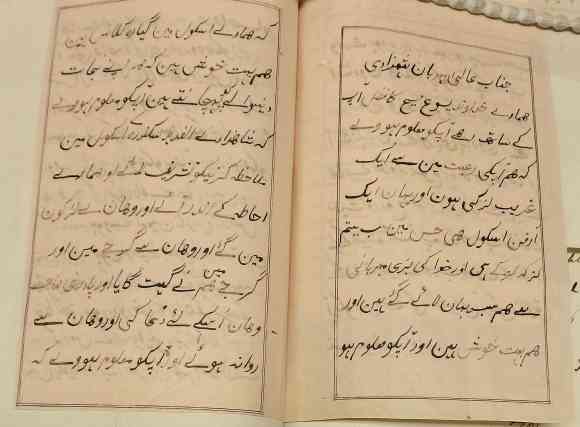 جناب عالی مہربان شہزادی
ہمارے خداوند یسوع مسیح کا فضل آپ
کے ساتھ رہے آپکو معلوم ہووے
کہ ہم آپکی رعیت مین سے ایک
غریب لڑکی ہون اور یہان ایک
آرفن اسکول ہی جس مین سب یتیم
ہی اور خدا کی بڑی مہربانی
سے ہم سب یہان لائے گئے ہین اور
ہم بہت خوش ہین اور آپکو معلوم ہو
کہ ہمارے اسکول مین کلاس ہین
ہم بہت خوش ہین کہ اپنے نجات
آپکو معلوم ہووے
کہ اسکول مین
ملاحظہ کرنیکو تشریف لائے اور ہمارے
احاطہ کے اندر آئے اور وہان سے لڑکون
مین گئے اور وہان سے گرجے مین اور
گرجے مین ہم نے گیت گایا اور پادری صاحب
وہان اسکے لئے دعا کی اور وہان سے
روانہ ہوئے اور آپکو معلوم ہووے کہ